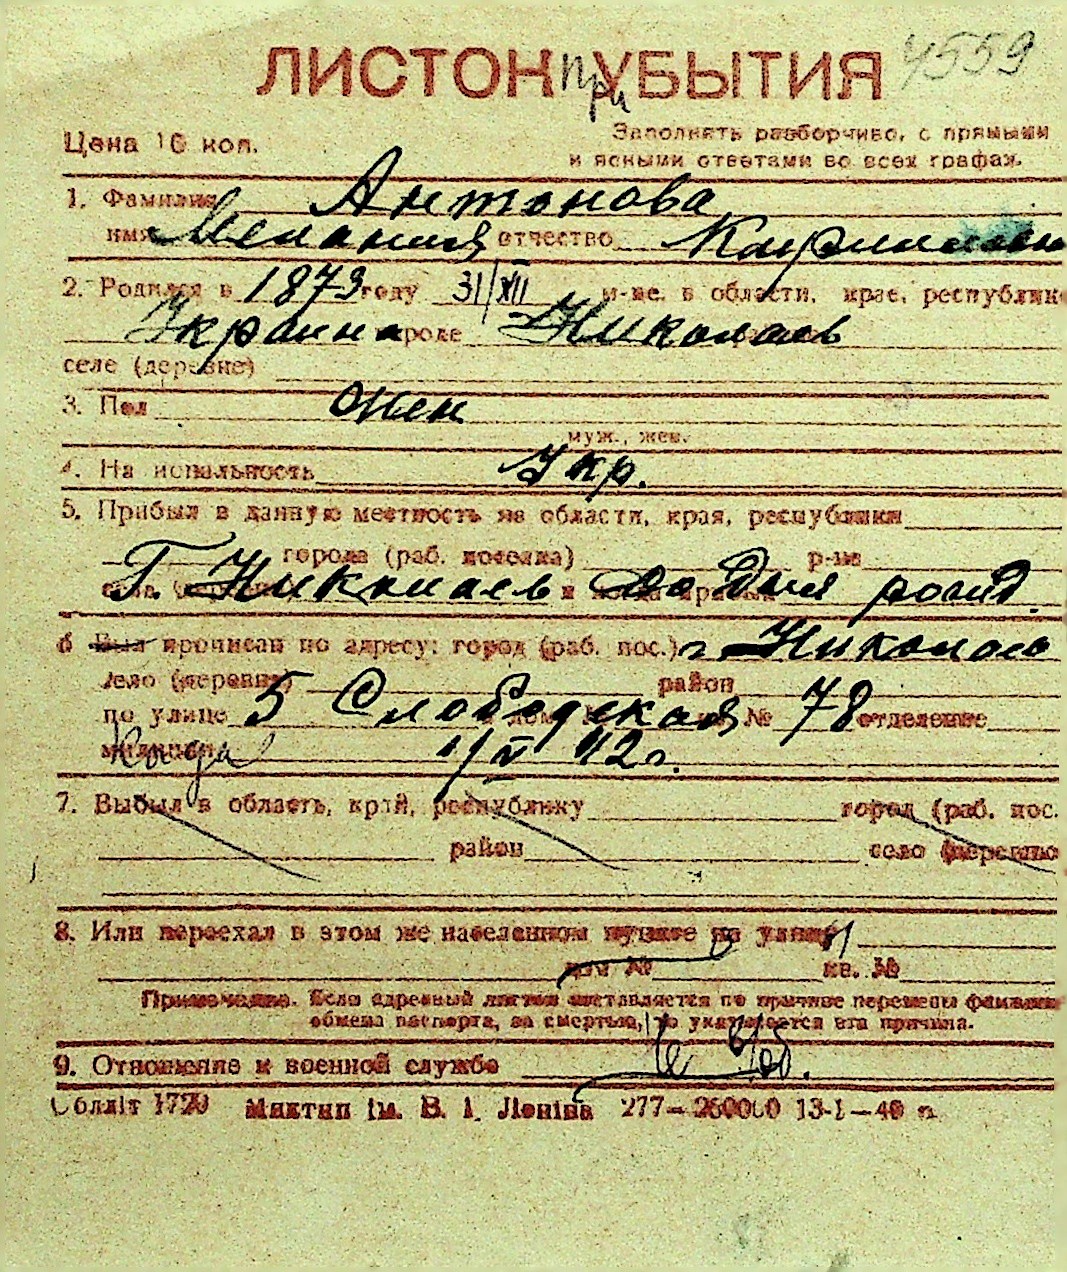 ЛИСТОК при УБЫТИЯ 4559
Цена 10 коп.
Заполнять разборчиво, с прямыми
и ясными ответами во всех графах.
1. Фамилия Антонова
имя Мелания отчество
2. Родился в 1873 году 31/XII м-це, в области, крае, республике
Украина городе Николаев
селе (деревне)
3. Пол Жен
муж., жен.
4. Национальность Укр.
5. Прибыл в данную местность из области, края, республики
города (раб. поселка) р-на
Г. Николаев со дня рожд.
6 Был прописан по адресу: город (раб. пос.) г. Николаев
село (деревня) район
по улице 5 Слободская дом № кв. № 78 отделение
милиции 1/V 42 г.
7. Выбыл в область, край, республику город (раб. пос.
район село (деревню
8. Или переехал в этом же населенном пункте на улицу
дом № кв. №
Примечание. Если адресный листок составляется по причине перемены фамилии
обмена паспорта, за смертью, то указывается эта причина.
9. Отношение к военной службе
Облліт 1720 Миктип ім. В. І. Леніна 277—260000 13-I—40 п.